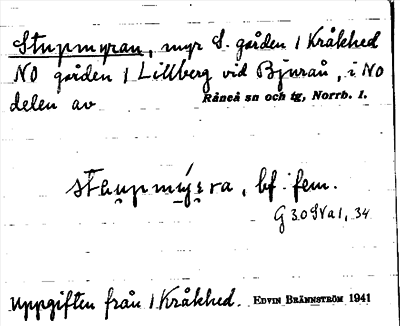 Stupmyran, myr S. gården 1 Kråkhed
NO gården 1 Lillberg vid Bjuraå, i NO
delen av Råneå sn och tg, Norrb. l.
bf. fem.
G 30 SV a 1, 34
Uppgiften från 1 Kråkhed. EDVIN BRÄNNSTRÖM 1941